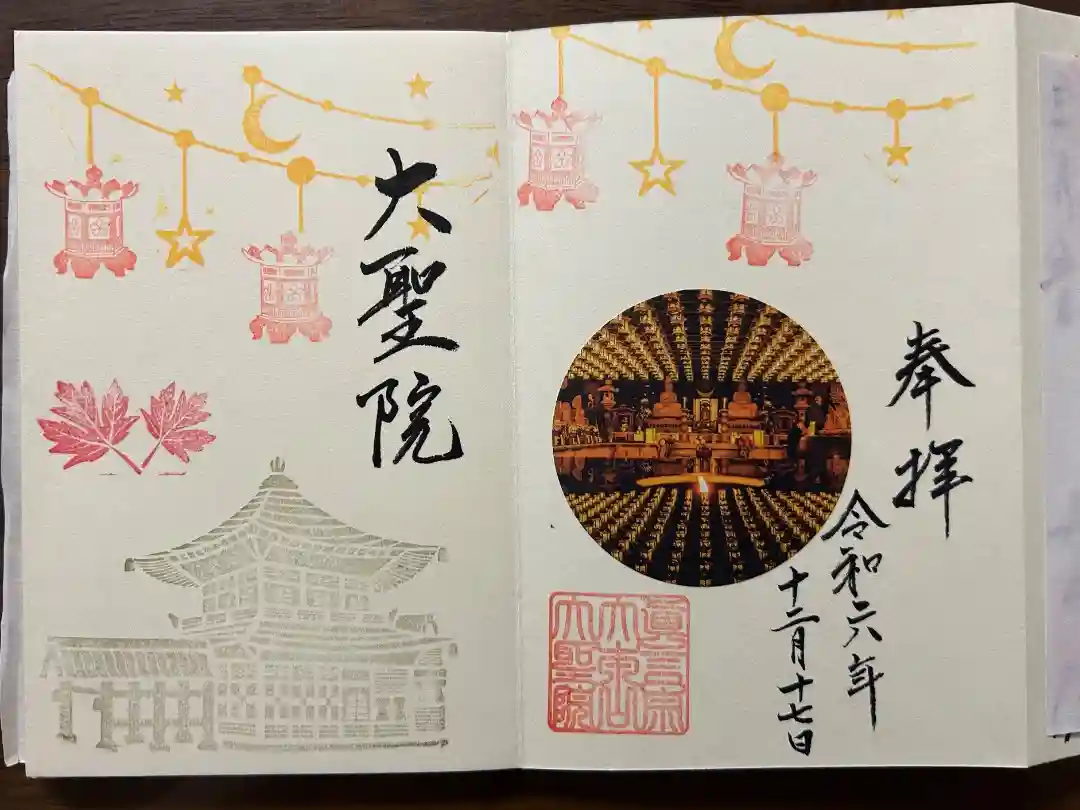 奉拝
令和六年
十二月十七日
眞言宗
大本山
大聖院
大聖院